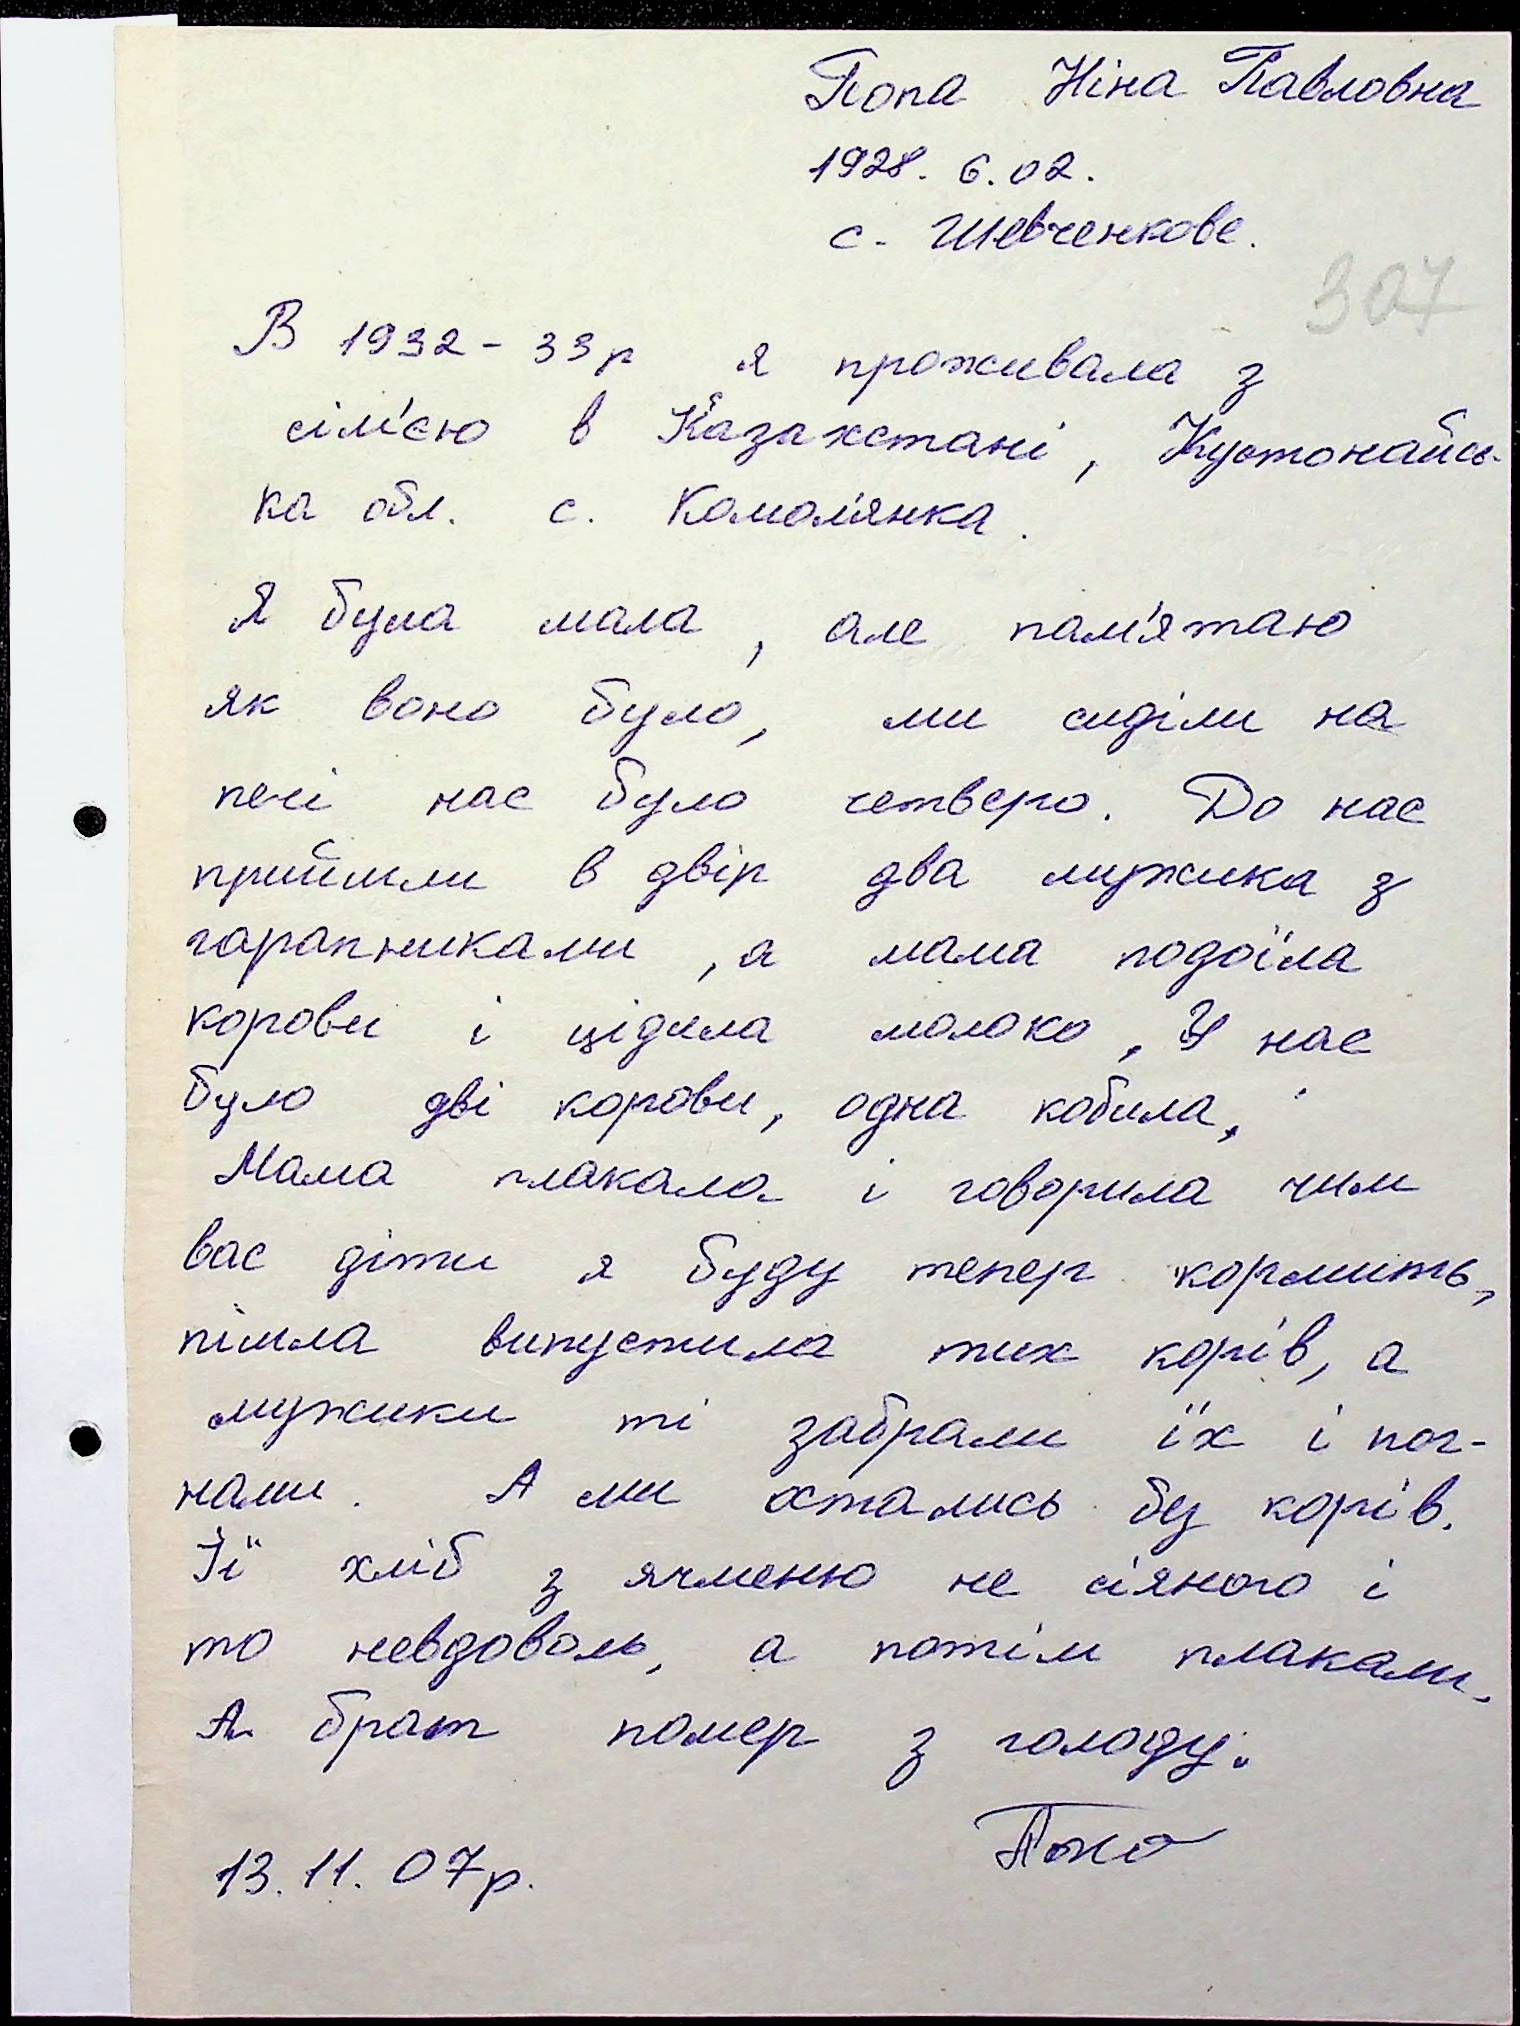 Попа Ніна Павловна
1928. 6.02.
с. Шевченкове.
307
В 1932-33р я проживала з
сім'єю в Казахстані, Кустонайсь-
ка обл. с. Комом'янка.
Я була мала, але пам'ятаю
як воно було, ми сиділи на
печі нас було четверо. До нас
прийшли в двір два мужика з
гарапниками, а мама подоїла
корови і цідила молоко, У нас
було дві корови, одна кобила,
Мама плакала і говорила чим
вас діти я буду тепер кормить,
пішла випустила тих корів, а
мужики ті забрали їх і пог-
нали. А ми остались без корів.
Її хліб з ячменю не сіяного і
то невдоволь, а потім плакали.
А брат помер з голоду.
13.11.07р.